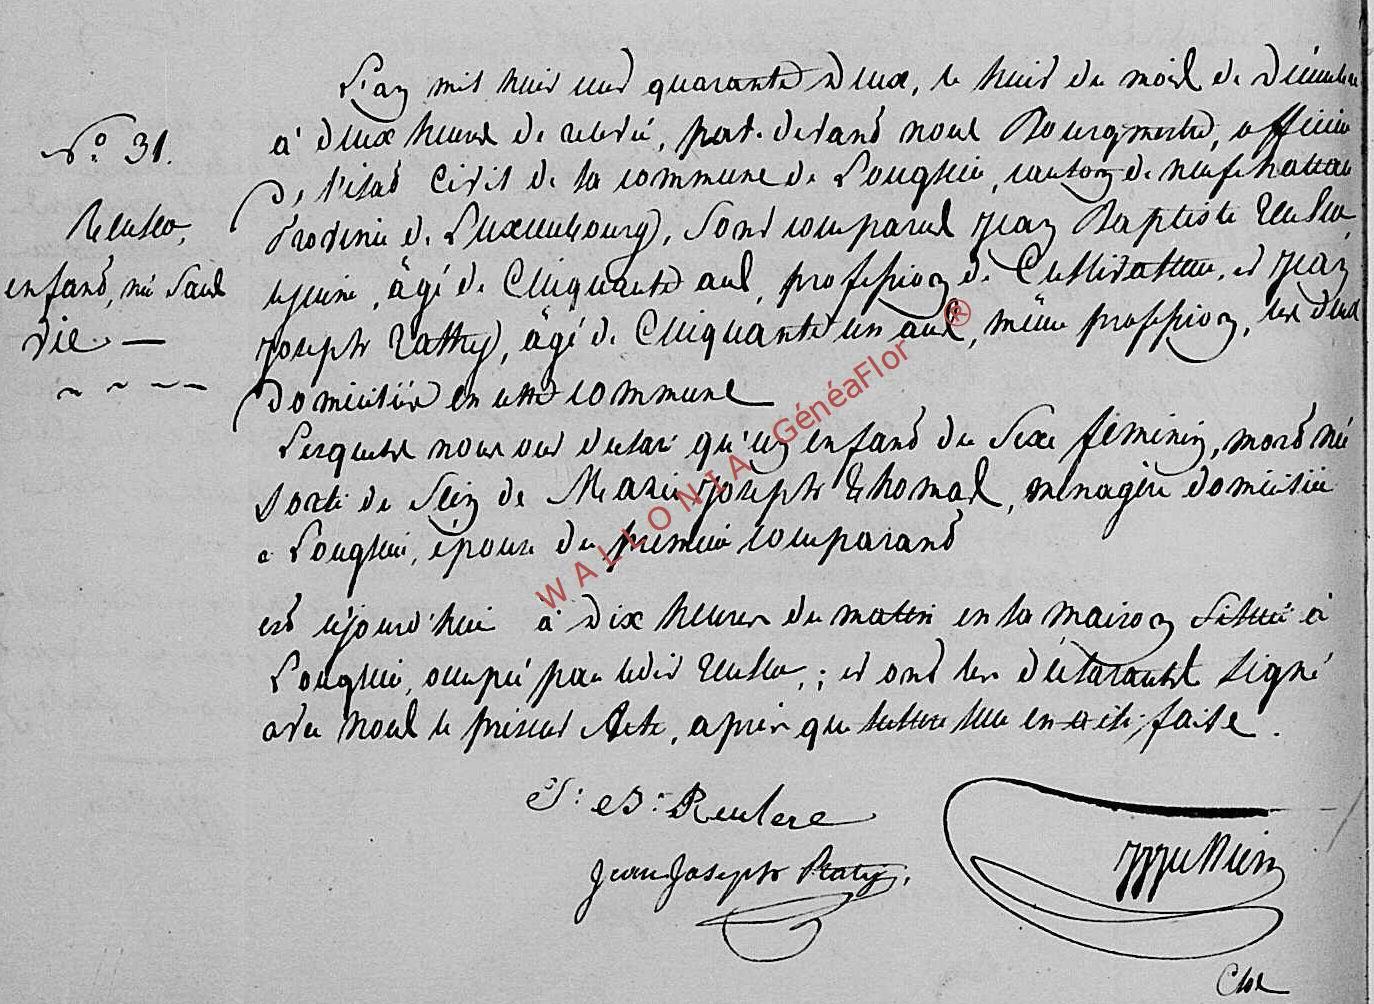 N.° 31.
enfant, né sans
vie. —
L'an mil huit cent quarante deux, le huit du mois de Décembre
à deux heures de relevée, par-devant nous Bourgmestre, officier
de l'état Civil de la commune de Longlier, canton de neufchateau
Province de Luxembourg, sont comparus Jean Baptiste
âgé de Cinquante ans, profession de Cultivateur, et Jean
Joseph âgé de Cinquante un ans, même profession, les deux
domiciliés en cette commune
Lesquels nous ont déclaré qu'un enfant du sexe féminin, mort né
sorti du sein de Marie Joseph Thomas, ménagère domiciliée
à Longlier, épouse du premier comparant
est aujourd'hui à dix heures du matin en la maison située à
Longlier, occupée par ledit ; et ont les déclarants signé
avec nous le présent Acte, après que lecture leur en a été faite.
J: B: Reulere
Jean Joseph
WALLONIA GénéaFlor ®